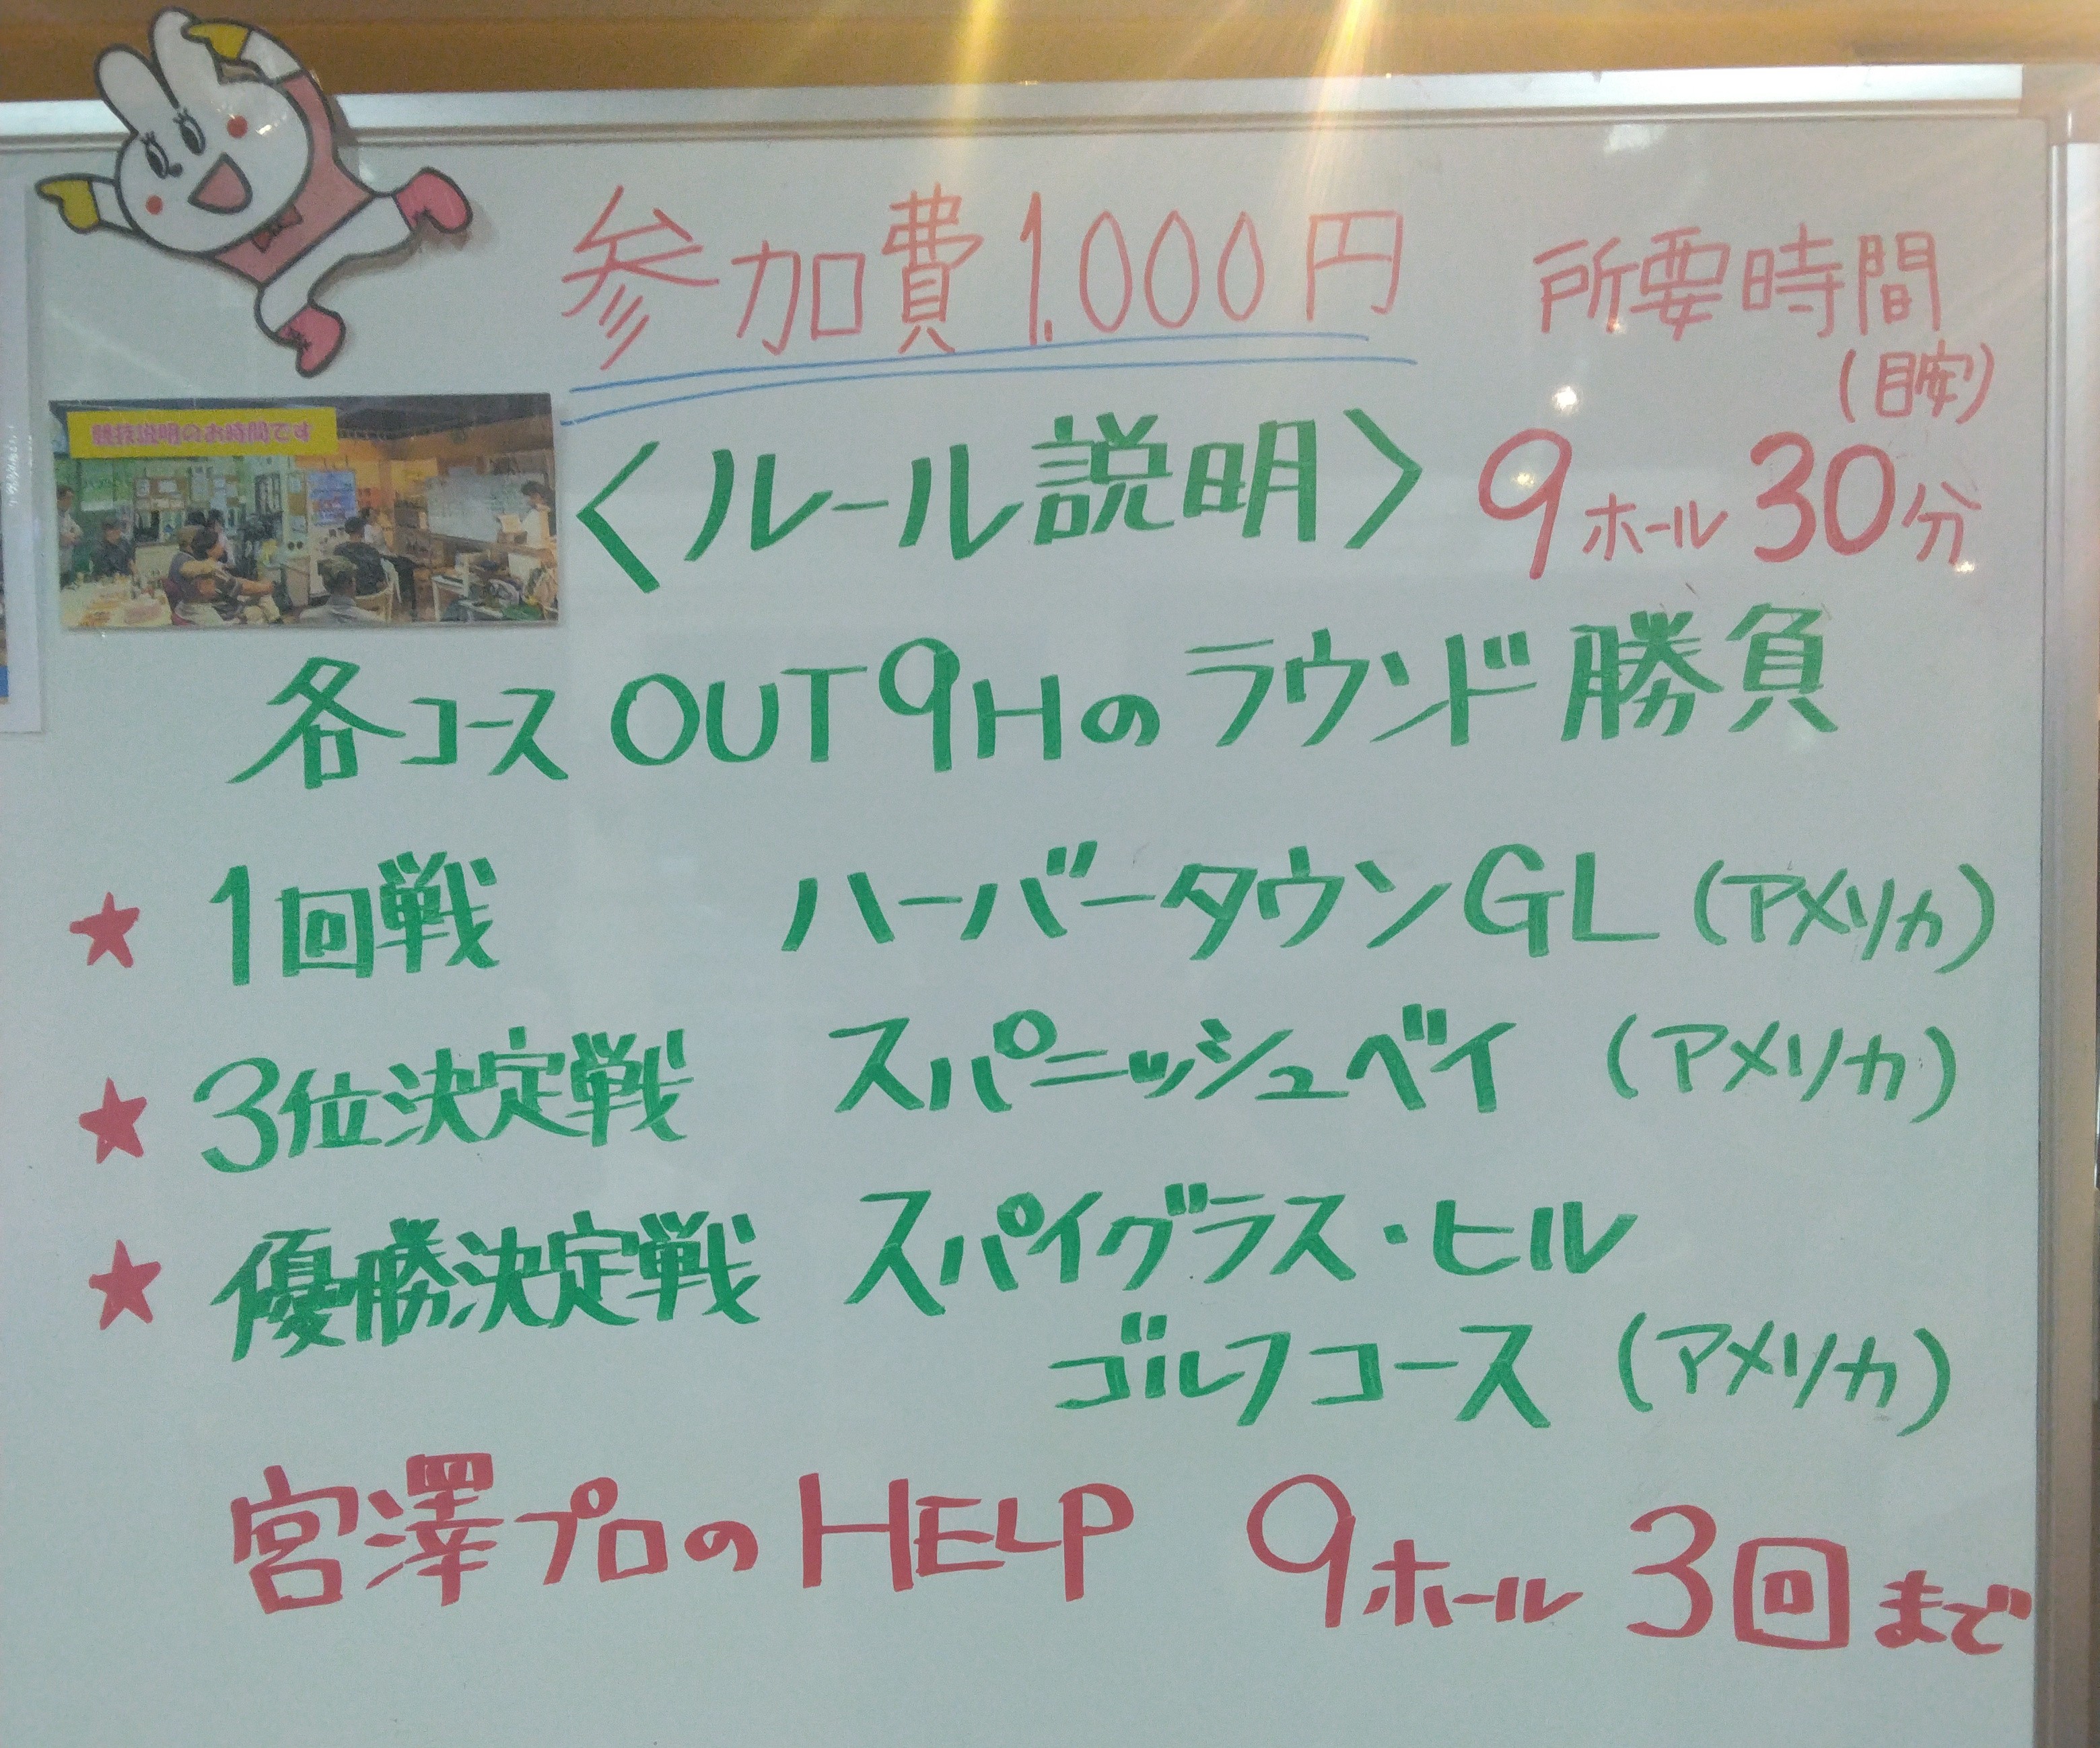 参加費1.000円
所要時間
(目安)
競技説明のお時間です
〈ルール説明〉
9ホール 30分
各コース OUT 9Hの ラウンド 勝負
★ 1回戦 ハーバータウンGL (アメリカ)
★ 3位決定戦 スパニッシュベイ (アメリカ)
★ 優勝決定戦 スパイグラス・ヒル
ゴルフコース (アメリカ)
宮澤プロの HELP 9ホール 3回まで